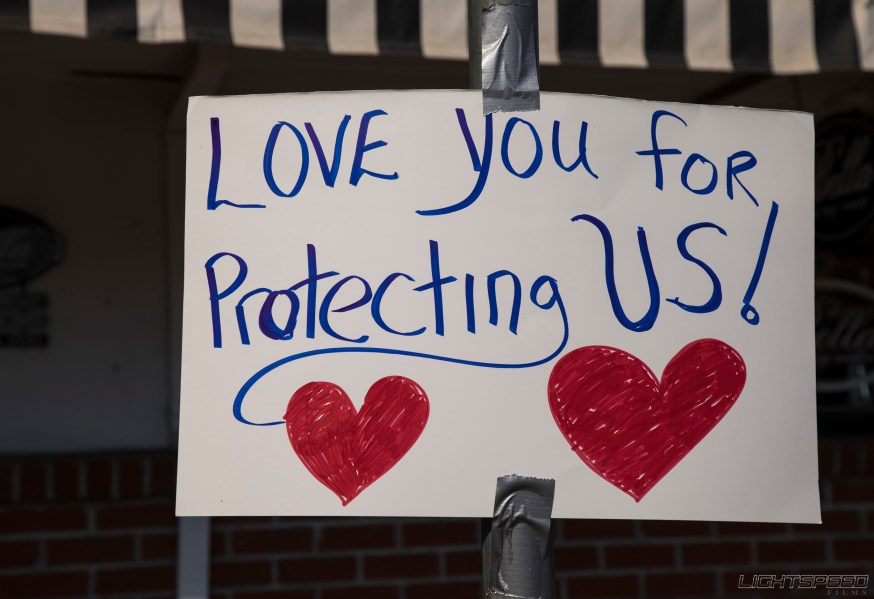 LOVE you FOR
Protecting US!
LIGHTSPEED
FILMS